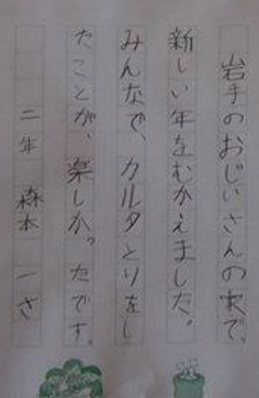 岩手のおじいさんの家で、
新しい年をむかえました。
みんなで、カルタとりをし
たことが、楽しかったです。
二年 森本 一さ